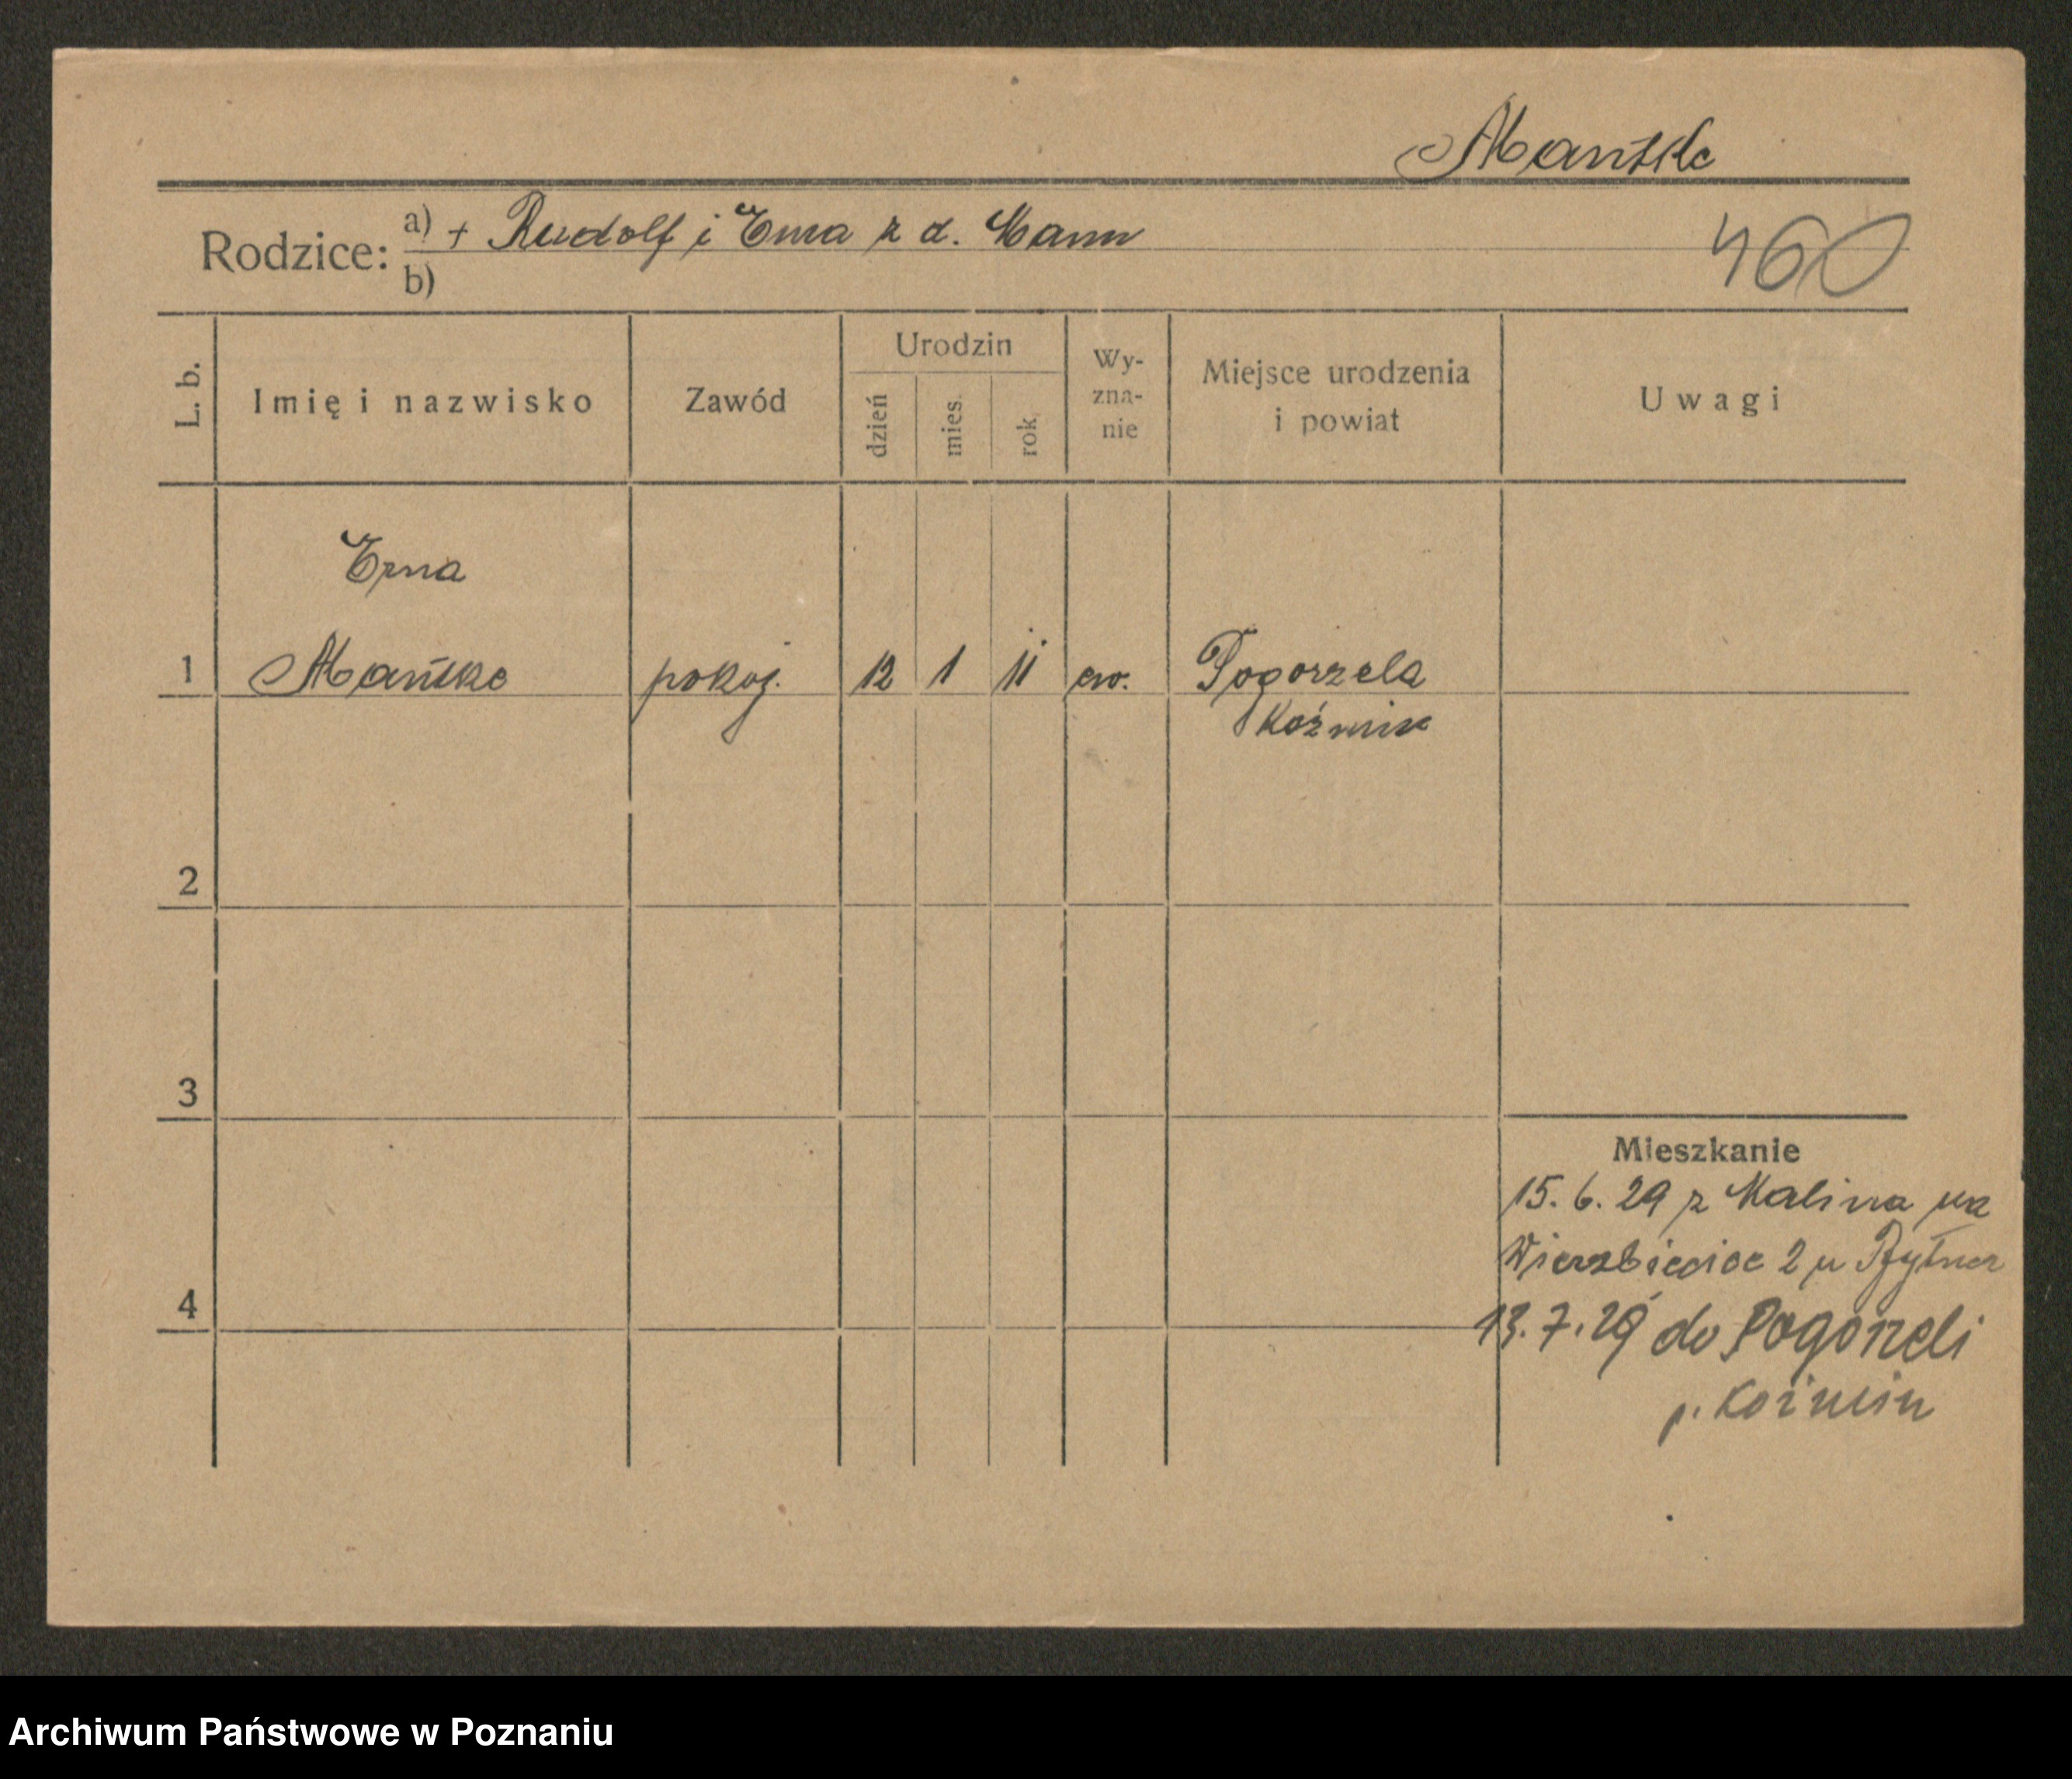 Mańtke
Rodzice: a) + Rudolf i Ema z d. Mann
b)
460
L. b.
Imię i nazwisko
Zawód
Urodzin
dzień
mies.
rok
Wy-
zna-
nie
Miejsce urodzenia
i powiat
Uwagi
Erna
1 Mańtke pokoj. 12 1 11 ew. Pogorzela
Koźmin
2
3
4
Mieszkanie
15. 6. 29 z Malina na
Wierzbięcice 2 u
13. 7. 29 do Pogorzeli
p. Koźmin
Archiwum Państwowe w Poznaniu